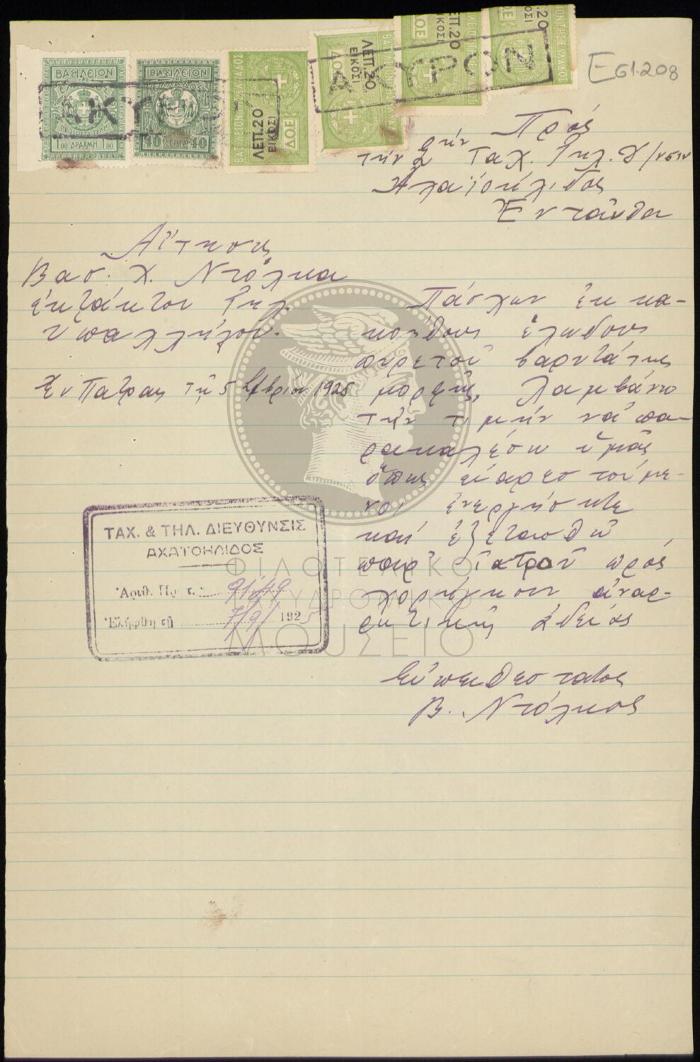 ΒΑΣΙΛΕΙΟΝ
ΒΑΣΙΛΕΙΟΝ
1 ΔΡΑΧΜΗ
40 40
ΛΕΠ.20
ΕΙΚΟΣΙ
ΔΟΕ
ΛΕΠ.20
ΕΙΚΟΣΙ
ΔΟΕ
ΑΚΥΡΟΝ
ΑΚΥΡΟΝ
E61-208
Πρός
την 2 αν Ταχ. Τηλ. Δ/νσιν
Αχαϊοήλιδος
Ενταῦθα
Αἴτησις
Βασ. Χ. Ντόλκα
ἐκτάκτου Τηλ.
ὑπαλλήλου.
Ἐν Πάτραις τῇ 5 1925
Πάσχων ἐκ κα-
κοήθους ἑλώδους
πυρετοῦ βαρυτάτης
μορφῆς, λαμβάνω
τὴν τιμὴν νὰ πα-
ρακαλέσω ὑμᾶς
ὅπως εὐαρεστούμε-
νοι ἐνεργήσητε
καὶ ἐξετασθῶ
παρ' ἰατροῦ πρὸς
χορήγησιν ἀναρ-
ρωτικῆς ἀδείας
Εὐπειθέστατος
Β. Ντόλκας
ΤΑΧ. & ΤΗΛ. ΔΙΕΥΘΥΝΣΙΣ
ΑΧΑΪΟΗΛΙΔΟΣ
Ἀριθ. Πρ.
Ἐλήφθη τῇ 7/9/ 1925
ΦΙΛΟΤΕΛΙΚΟ
ΤΑΧΥΔΡΟΜΙΚΟ
ΜΟΥΣΕΙΟ